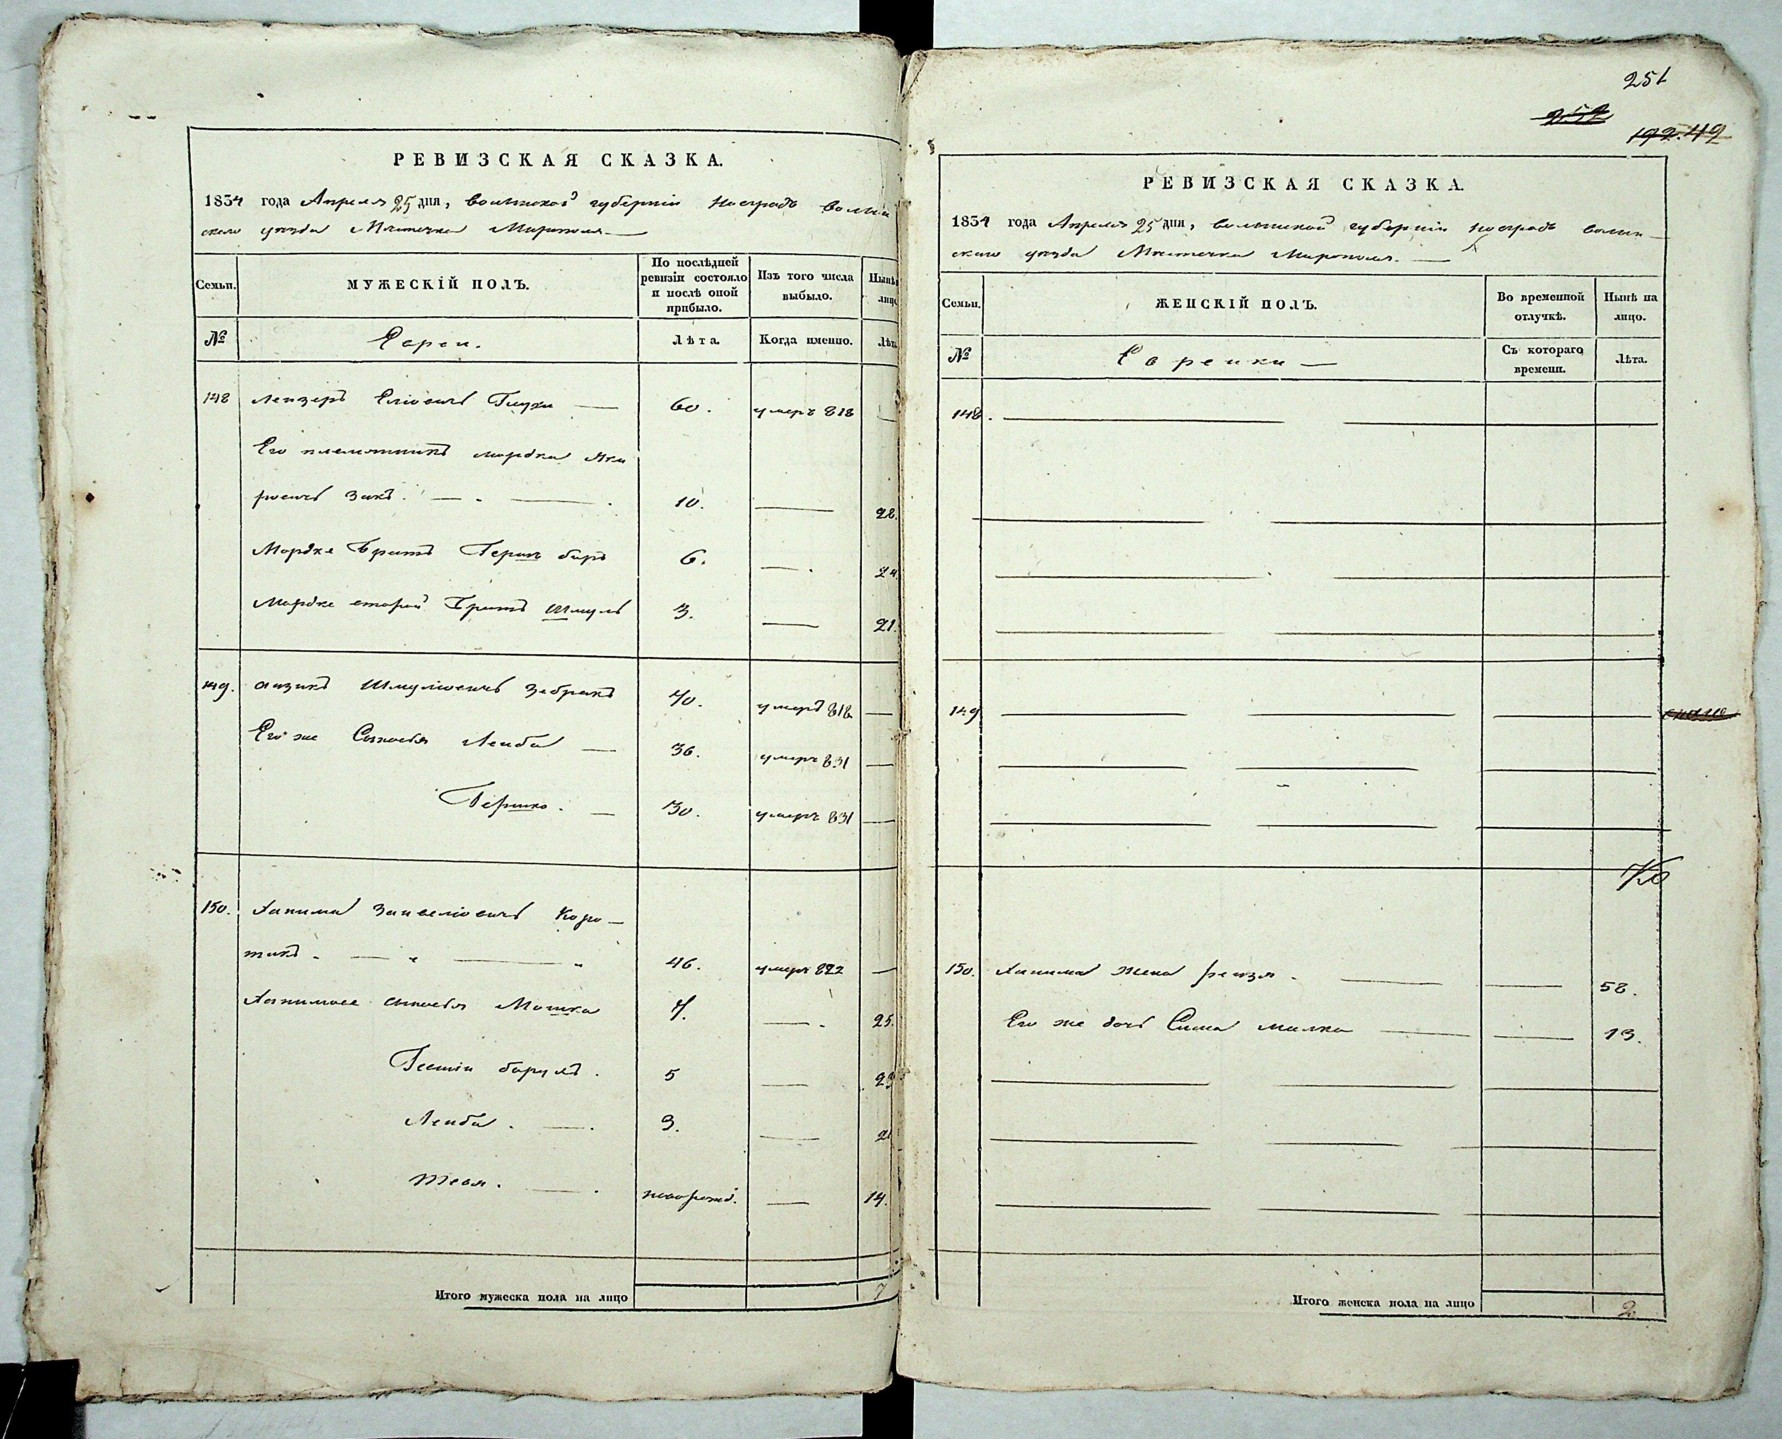 РЕВИЗСКАЯ СКАЗКА.
1834 года Апреля 25 дня, волынской губернiи Новградъ волын
скаго уѣзда Мѣстечка Мирополя
Семьи. МУЖЕСКIЙ ПОЛЪ. По послѣдней ревизiи состояло и послѣ оной прибыло. Изъ того числа выбыло. Нынѣ лицо
№ Евреи. Лѣта. Когда именно. Лѣта
148 Лейзеръ Елiовичъ 60. умеръ 818
Его племянникъ мордка Янке
ровичъ Закъ. 10. 28.
Мордке Братъ Герш беръ 6. 24.
Мордке второй Братъ Шмуль 3. 21.
149. Айзикъ Шмулiовичъ Зебракъ 70. умеръ 818
Его же Сыновья Лейба 36. умеръ 831
Гершко. 30. умеръ 831
150. Хаима Зайвелiовичъ Коро
тикъ. 46. умеръ 822
Хаимове сыновья Мошка 7. 25.
5 23
Лейба. 3. 21
Тевя. новорожд. 14.
Итого мужеска пола на лицо 7
251
252
192. 49
РЕВИЗСКАЯ СКАЗКА.
1834 года Апреля 25 дня, волынской губернiи Новградъ волын
скаго уѣзда Мѣстечка Мирополя.
Семьи. ЖЕНСКIЙ ПОЛЪ. Во временной отлучкѣ. Нынѣ на лицо.
№ Еврейки Съ котораго времени. Лѣта.
148.
149
150. Хаима жена рейзя. 58.
Его же дочь Сима малка 13.
Итого женска пола на лицо 2.